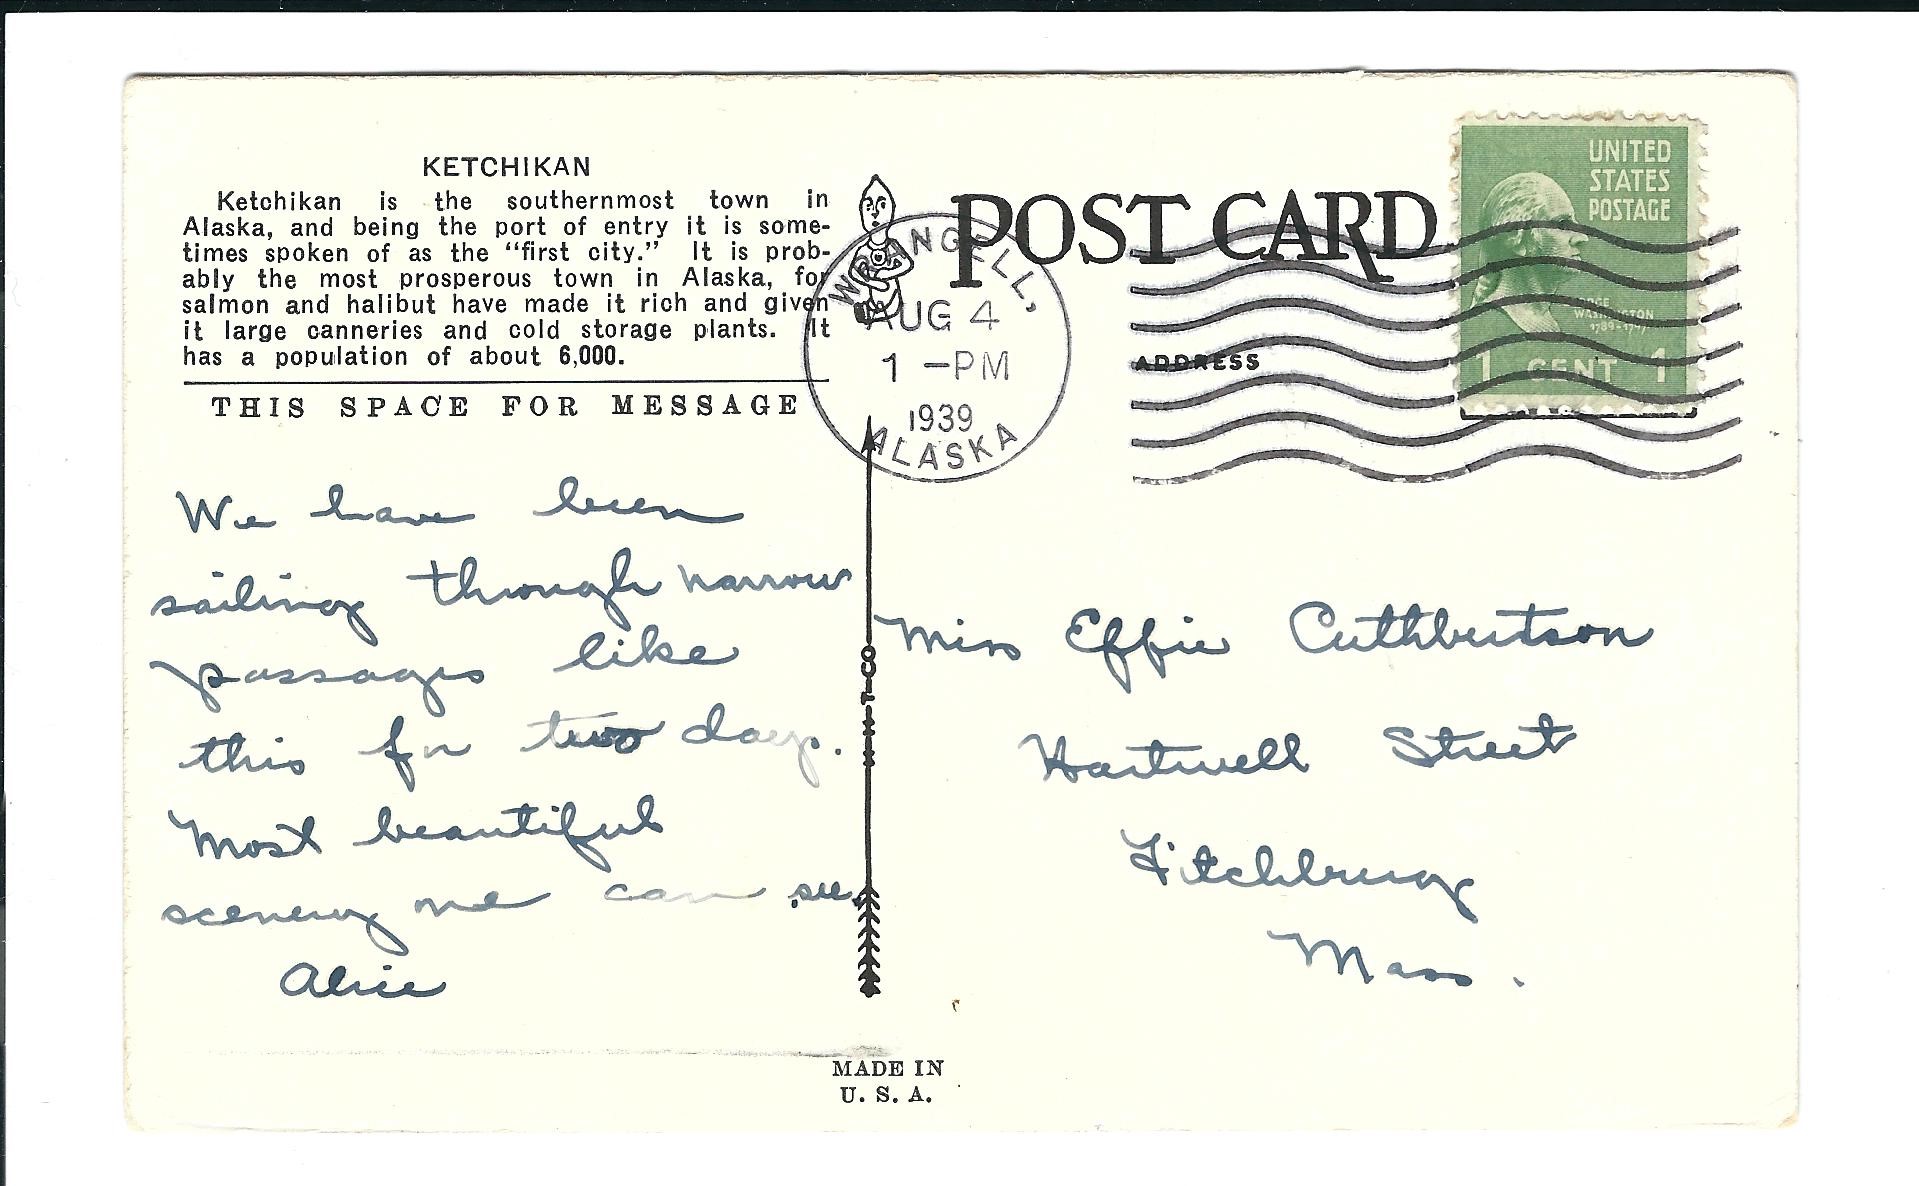 KETCHIKAN
Ketchikan is the southernmost town in
Alaska, and being the port of entry it is some-
times spoken of as the “first city.” It is prob-
ably the most prosperous town in Alaska, for
salmon and halibut have made it rich and given
it large canneries and cold storage plants. It
has a population of about 6,000.
THIS SPACE FOR MESSAGE
We have been
sailing through narrow
passages like
this for two days.
Most beautiful
scenery one can see.
Alice
POST CARD
WRANGELL,
AUG 4
1 -PM
1939
ALASKA
ADDRESS
UNITED
STATES
POSTAGE
WASHINGTON
1789-1797
1 CENT 1
Miss Effie Cuthbertson
Hartwell Street
Fitchburg
Mass.
MADE IN
U. S. A.